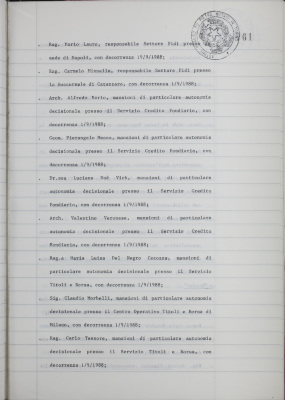 . Rag. Mario Lauro, responsabile Settore Fidi presso la
sede di Napoli, con decorrenza 15/9/1988;
. Rag. Carmelo responsabile Settore Fidi presso
la Succursale di Catanzaro, con decorrenza 1/9/1988;
. Arch. Alfredo mansioni di particolare autonomia
decisionale presso il Servizio Credito Fondiario, con
decorrenza 1/9/1988;
. Geom. Pierangelo mansioni di particolare autonomia
decisionale presso il Servizio Credito Fondiario, con
decorrenza 1/9/1988;
. Dr.ssa Luciana mansioni di particolare
autonomia decisionale presso il Servizio Credito
Fondiario, con decorrenza 1/9/1988;
. Arch. Valentino Veronese, mansioni di particolare
autonomia decisionale presso il Servizio Credito
Fondiario, con decorrenza 1/9/1988;
. Rag.a Maria Luisa Del Negro mansioni di
particolare autonomia decisionale presso il Servizio
Titoli e Borsa, con decorrenza 1/9/1988;
. Sig. Claudio Morbelli, mansioni di particolare autonomia
decisionale presso il Centro Operativo Titoli e Borsa di
Milano, con decorrenza 1/9/1988;
. Rag. Carlo mansioni di particolare autonomia
decisionale presso il Servizio Titoli e Borsa, con
decorrenza 1/9/1988;